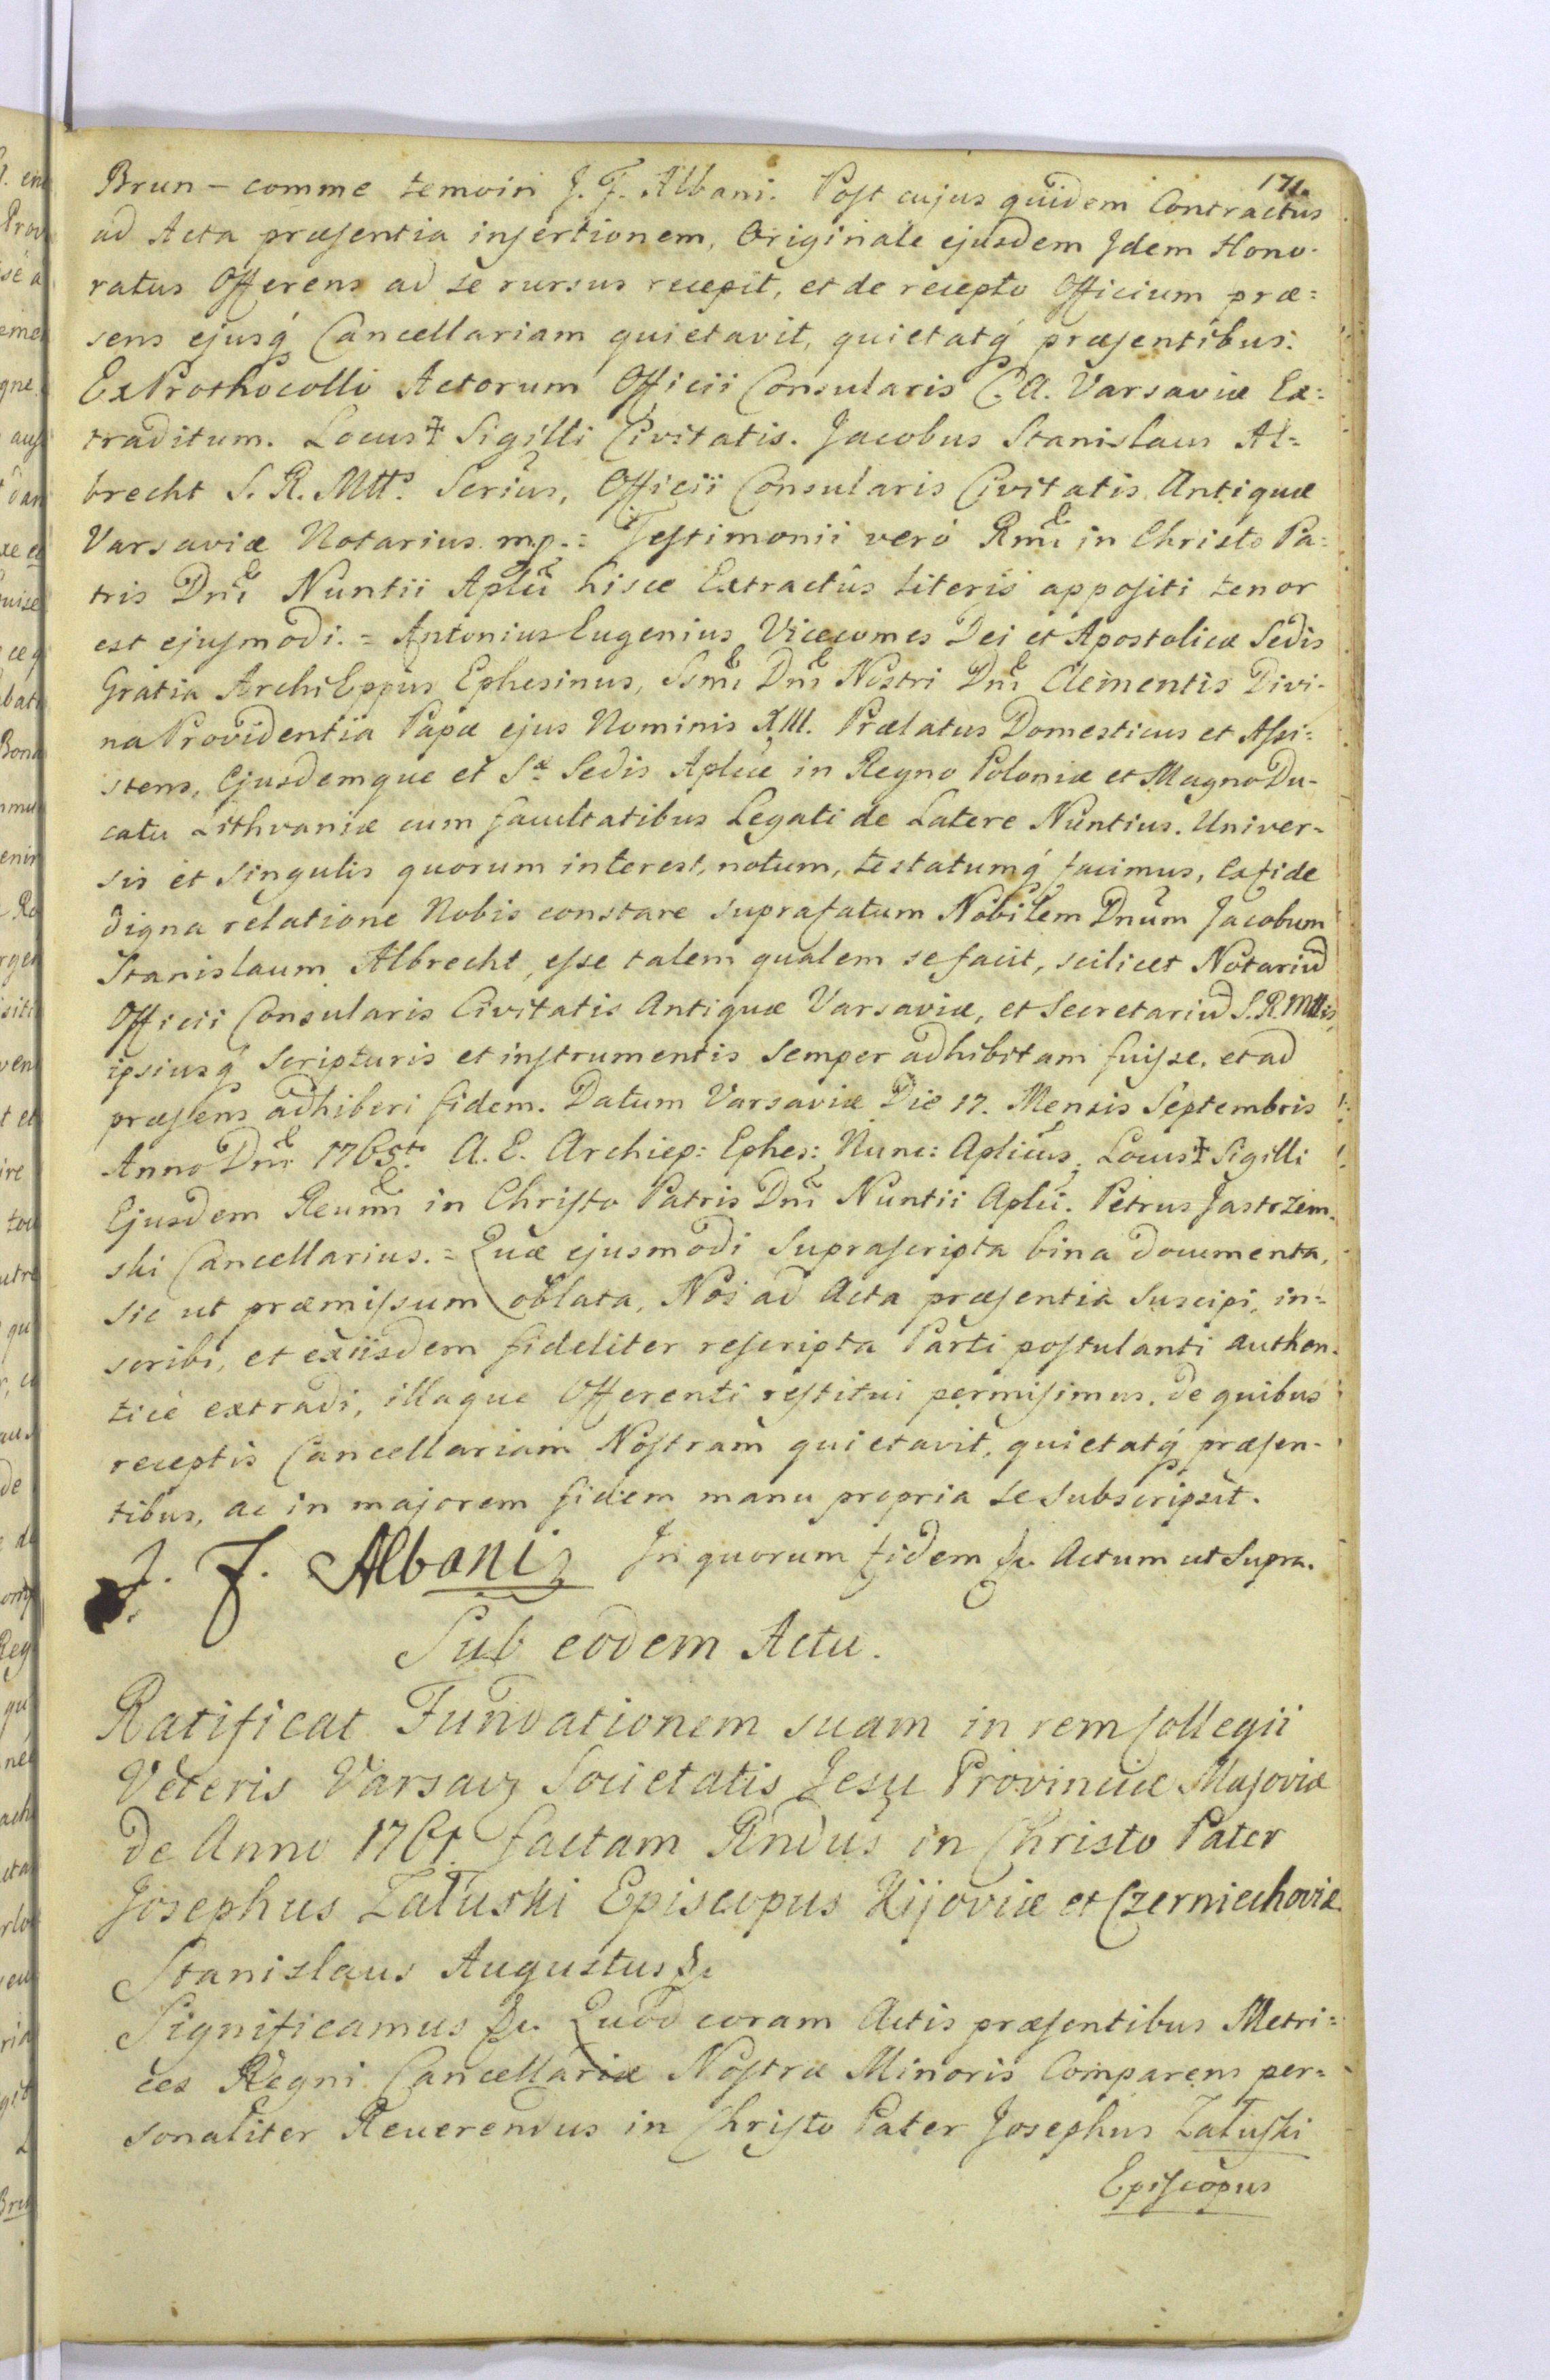 171.
Brun – comme temoin J. F. Albani. Post cujus quidem Contractus
ad Acta præsentia insertionem, Originale ejusdem Idem Hono-
ratus Offerens ad se rursus recepit, et de recepto Officium præ=
sens ejusq́ Cancellariam quietavit, quietatq́ præsentibus.
Ex Prothocollo Actorum Officii Consularis C. A. Varsaviæ Ex=
traditum. Locus ☩ Sigilli Civitatis. Jacobus Stanislaus Al=
brecht S. R. Mttis Scrius, Officii Consularis Civitatis Antiquæ
Varsaviæ Notarius mp.= Testimonii verò Rmi in Christo Pa=
tris Dni Nuntii Aplici hisce Extractûs literis appositi tenor
est ejusmodi.= Antonius Eugenius Vicecomes Dei et Apostolicæ Sedis
Gratia ArchiEppus Ephesinus, Ssmi Dni Nostri Dni Clementis Divi-
na Providentia Papæ ejus Nominis XIII. Prælatus Domesticus et Assi=
stens, Ejusdemque et Sæ Sedis Aplicæ in Regno Poloniæ et Magno Du-
catu Lithvaniæ cum facultatibus Legati de Latere Nuntius. Univer=
sis et singulis quorum interest, notum, testatumq́ facimus, ex fide
digna relatione Nobis constare suprafatum Nobilem Dnum Jacobum
Stanislaum Albrecht, esse talem qualem se facit, scilicet Notariũ
Officii Consularis Civitatis Antiquæ Varsaviæ, et Secretariũ S. R. Mttis,
ipsiusq́ Scripturis et instrumentis semper adhibitam fuisse, et ad
præsens adhiberi fidem. Datum Varsaviæ Die 17. Mensis Septembris
Anno Dni 1765to. A. E. Archiep: Ephes: Nunc: Aplicus. Locus ☩ Sigilli
Ejusdem Reumi in Christo Patris Dni Nuntii Aplici. Petrus Jastrzem-
ski Cancellarius.= Quæ ejusmodi suprascripta bina documenta,
sic ut præmissum oblata, Nos ad Acta præsentia suscipi, in=
scribi, et exiisdem fideliter rescripta Parti postulanti authen-
ticè extradi, illaque Offerenti restitui permisimus. de quibus
receptis Cancellariam Nostram quietavit, quietatq́ præsen-
tibus, ac in majorem fidem manu propria se subscripsit.
J. F. Albani In quorum fidem &c. Actum ut supra.
Sub eodem Actu.
Ratificat Fundationem suam in rem Collegii
Veteris Varsav; Societatis Jesu Provinciæ Masoviæ
de Anno 1761. factam Rndus in Christo Pater
Josephus Załuski Episcopus Kijoviæ et Czerniechoviæ.
Stanislaus Augustus &c.
Significamus &c. Quod coram Actis præsentibus Metri=
ces Regni Cancellariæ Nostræ Minoris Comparens per=
sonaliter Reuerendus in Christo Pater Josephus Załuski
Episcopus